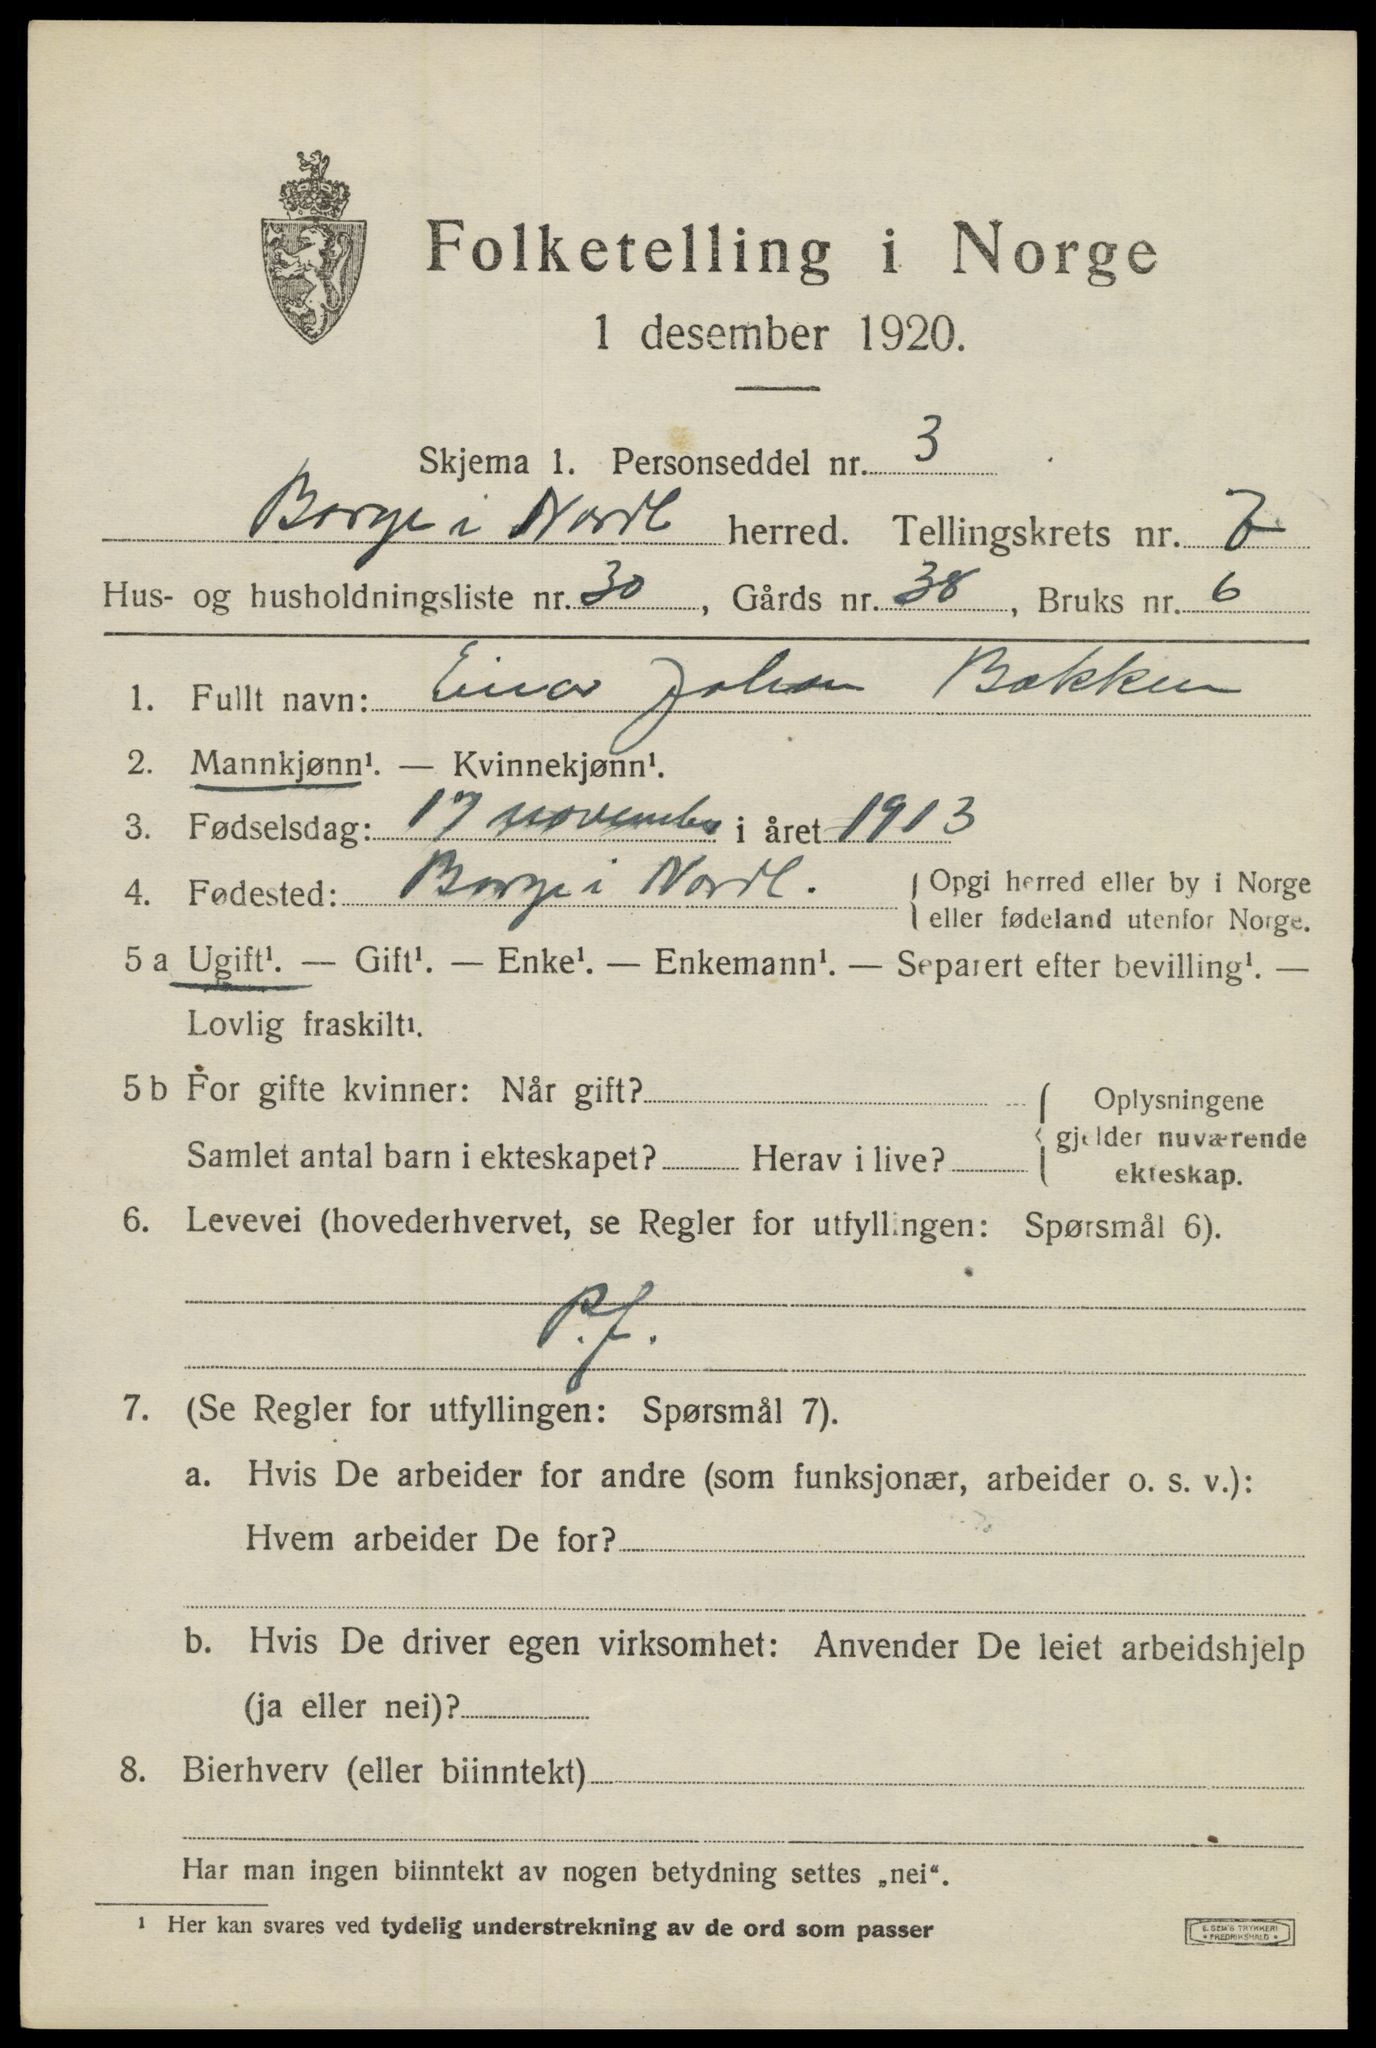 Folketelling i Norge
1 desember 1920.
Skjema 1. Personseddel nr. 3
Borge i Nordl herred. Tellingskrets nr. 7
Hus- og husholdningsliste nr. 30, Gårds nr. 38, Bruks nr. 6
1. Fullt navn: Einar Johan Bakken
2. Mannkjønn¹. — Kvinnekjønn¹.
3. Fødselsdag: 17 november i året 1913
4. Fødested: Borge i Nordl. { Opgi herred eller by i Norge
eller fødeland utenfor Norge.
5 a Ugift¹. — Gift¹. — Enke¹. — Enkemann¹. — Separert efter bevilling¹. —
Lovlig fraskilt¹.
5 b For gifte kvinner: Når gift?
Samlet antal barn i ekteskapet? Herav i live?
{ Oplysningene
gjelder nuværende
ekteskap.
6. Levevei (hovederhvervet, se Regler for utfyllingen: Spørsmål 6).
P.f.
7. (Se Regler for utfyllingen: Spørsmål 7).
a. Hvis De arbeider for andre (som funksjonær, arbeider o. s. v.):
Hvem arbeider De for?
b. Hvis De driver egen virksomhet: Anvender De leiet arbeidshjelp
(ja eller nei)?
8. Bierhverv (eller biinntekt)
Har man ingen biinntekt av nogen betydning settes „nei“.
¹ Her kan svares ved tydelig understrekning av de ord som passer
E. SEM'S TRYKKERI
• FREDRIKSHALD •